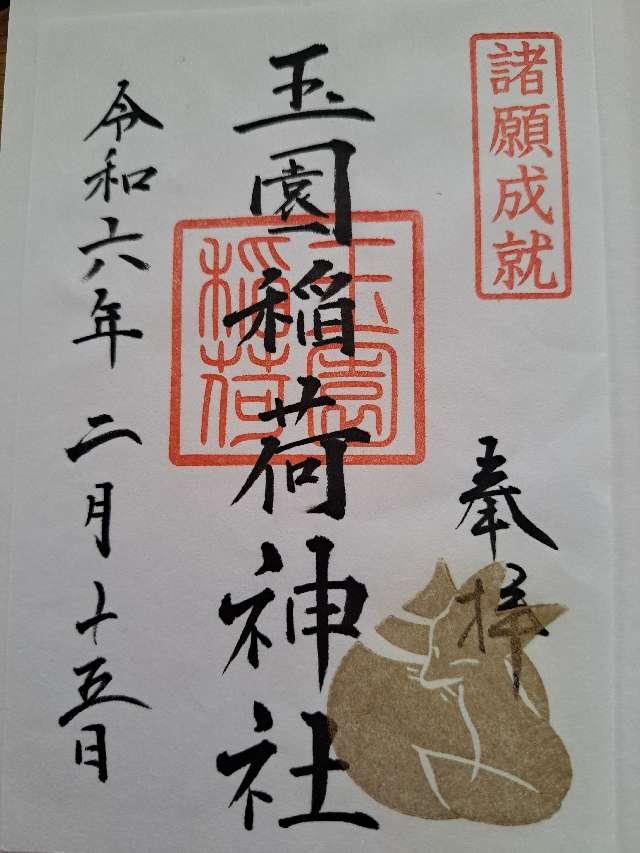 諸願成就
奉拝
玉園稲荷神社
玉園
稲荷
令和六年二月十五日